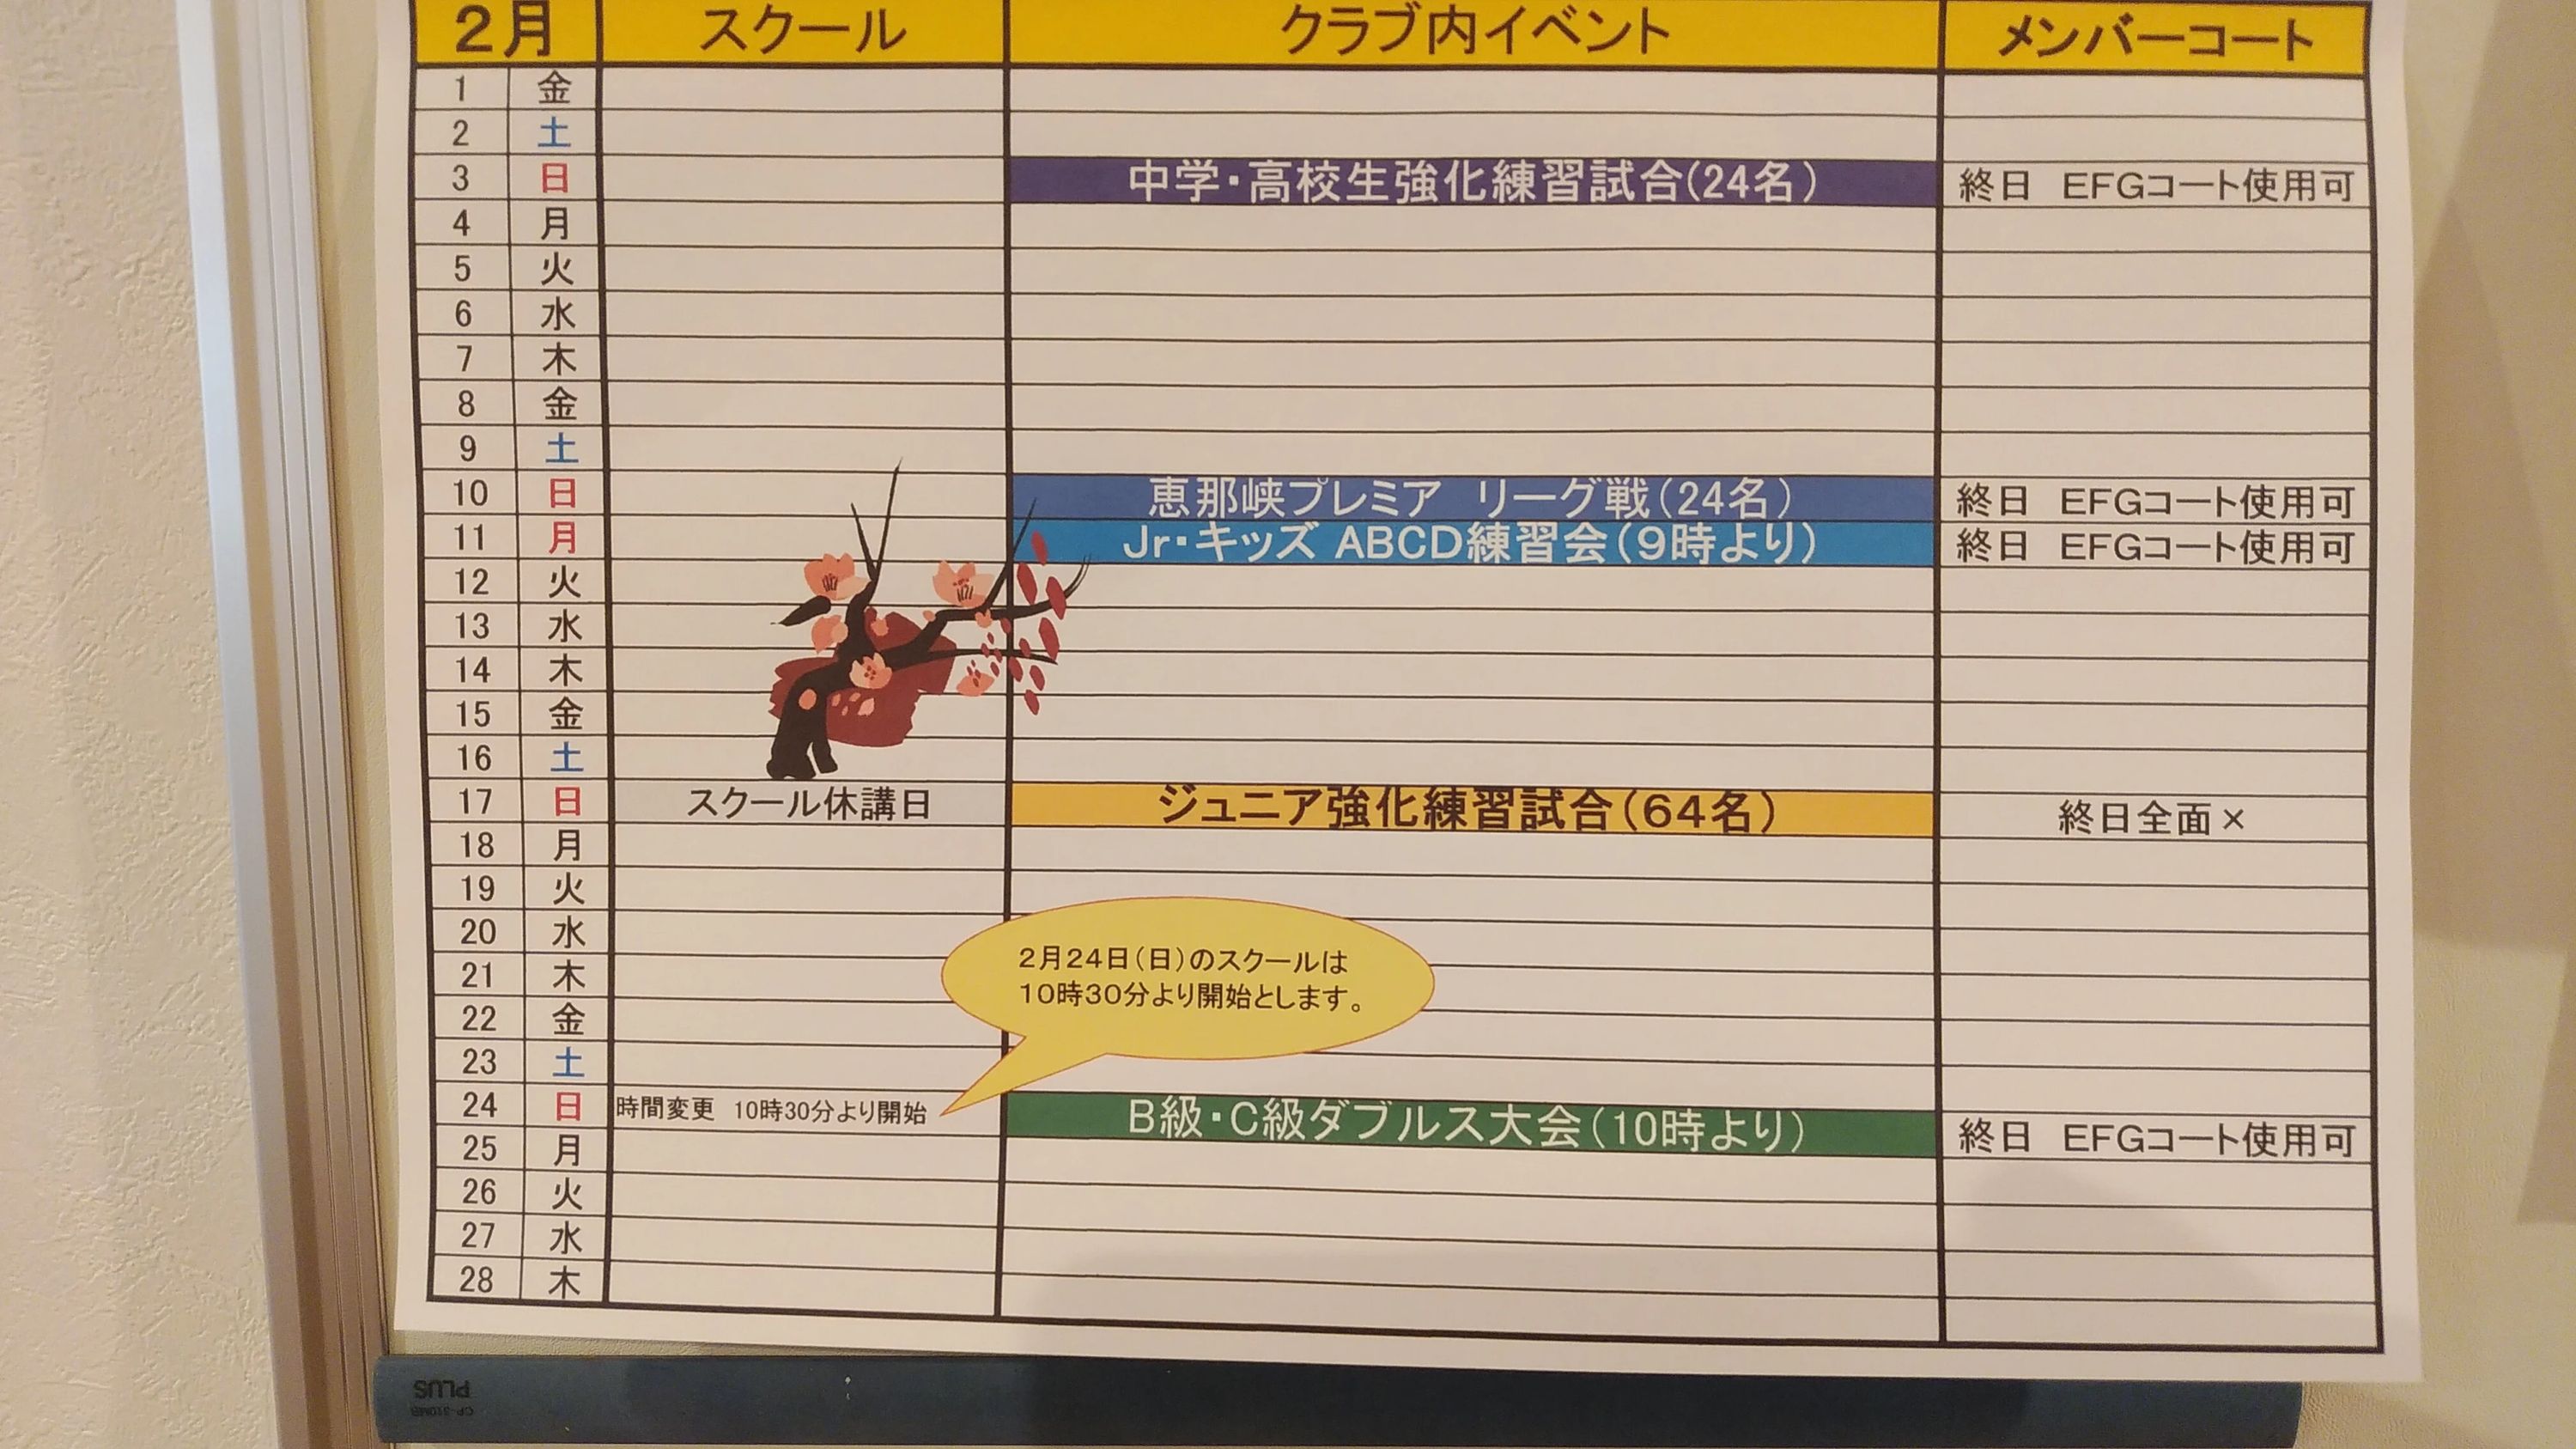 2月 スクール クラブ内イベント メンバーコート
1 金
2 土
3 日 中学・高校生強化練習試合(24名) 終日 EFGコート使用可
4 月
5 火
6 水
7 木
8 金
9 土
10 日 恵那峡プレミア リーグ戦(24名) 終日 EFGコート使用可
11 月 Jr・キッズ ABCD練習会(9時より) 終日 EFGコート使用可
12 火
13 水
14 木
15 金
16 土
17 日 スクール休講日 ジュニア強化練習試合(64名) 終日全面×
18 月
19 火
20 水
21 木
22 金
23 土
2月24日(日)のスクールは
10時30分より開始とします。
24 日 時間変更 10時30分より開始 B級・C級ダブルス大会(10時より) 終日 EFGコート使用可
25 月
26 火
27 水
28 木
PLUS